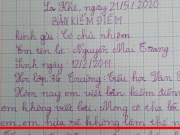 La Khê, ngày 21/5/2020
BẢN KIỂM ĐIỂM
kính gửi: Cô chủ nhiệm
Em tên là: Nguyễn Mai Trang
Sinh ngày 12/2/2011
Học lớp 3 Trường: Tiểu học Văn
Hôm nay em viết bản kiểm điểm
em không viết bài. Mong cô tha
em, em hứa sẽ không làm